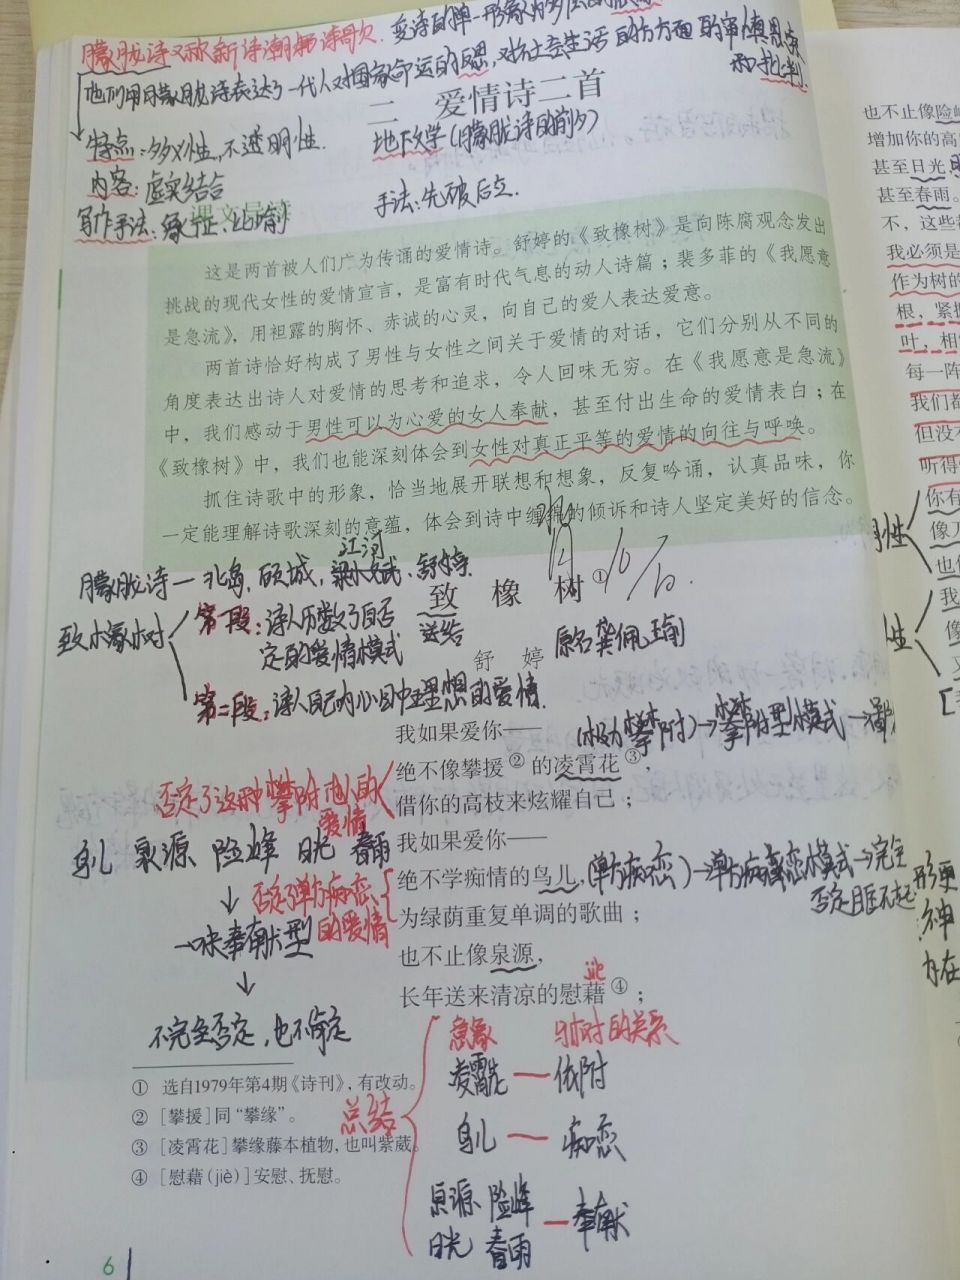 朦胧诗又称新诗潮诗歌
他们用朦胧诗表达了一代人对国家命运的反思,对社会生活的方方面面的审慎思
和批判
二 爱情诗二首
特点:多义性,不透明性.
地下文学(朦胧诗的前夕)
内容:虚实结合
手法:先破后立.
写作手法:象征、比喻
课文导读
这是两首被人们广为传诵的爱情诗。舒婷的《致橡树》是向陈腐观念发出
挑战的现代女性的爱情宣言,是富有时代气息的动人诗篇;裴多菲的《我愿意
是急流》,用袒露的胸怀、赤诚的心灵,向自己的爱人表达爱意。
两首诗恰好构成了男性与女性之间关于爱情的对话,它们分别从不同的
角度表达出诗人对爱情的思考和追求,令人回味无穷。在《我愿意是急流》
中,我们感动于男性可以为心爱的女人奉献,甚至付出生命的爱情表白;在
《致橡树》中,我们也能深刻体会到女性对真正平等的爱情的向往与呼唤。
抓住诗歌中的形象,恰当地展开联想和想象,反复吟诵,认真品味,你
一定能理解诗歌深刻的意蕴,体会到诗中缠绵的倾诉和诗人坚定美好的信念。
江河
朦胧诗—北岛,顾城,梁小斌,舒婷.
致橡树①
送给
致橡树
第一段:诗人历数了自否
定的爱情模式
第二段:诗人自己内心目中理想的爱情.
舒 婷
原名龚佩瑜
我如果爱你——
(极力攀附)→攀附型模式→
绝不像攀援②的凌霄花③,
借你的高枝来炫耀自己;
否定了这种攀附他人的
爱情
我如果爱你——
鸟儿 泉源 险峰 日光 春雨
绝不学痴情的鸟儿,
(单方痴恋)→单方病痴恋模式→完全
否定
否定了单方痴恋
的爱情
为绿荫重复单调的歌曲;
一味奉献型
也不止像泉源,
jiè
长年送来清凉的慰藉④;
不完全否定,也不肯定
总结
意象
凌霄花—依附
鸟儿—痴恋
泉源 险峰
日光 春雨
—奉献
① 选自1979年第4期《诗刊》,有改动。
② [攀援]同“攀缘”。
③ [凌霄花]攀缘藤本植物,也叫紫葳。
④ [慰藉(jiè)]安慰、抚慰。
6
也不止像险峰
增加你的高
甚至日光
甚至春雨。
不,这些
我必须是
作为树的
根,紧握
叶,相
每一阵
我们都
但没
听得
你有
像刀
也
我
像
又
形更
神
存在